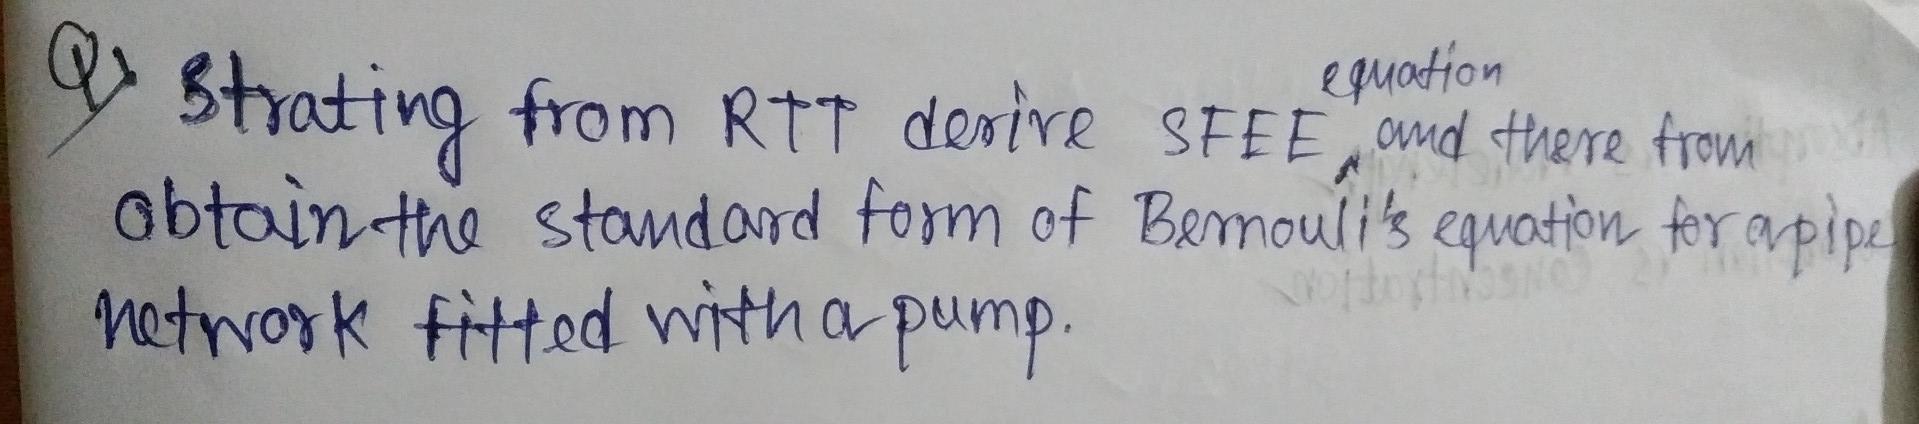 Q) Strating from RTT derive SFEE equation and there from
obtain the standard form of Bernouli's equation for a pipe
network fitted with a pump.